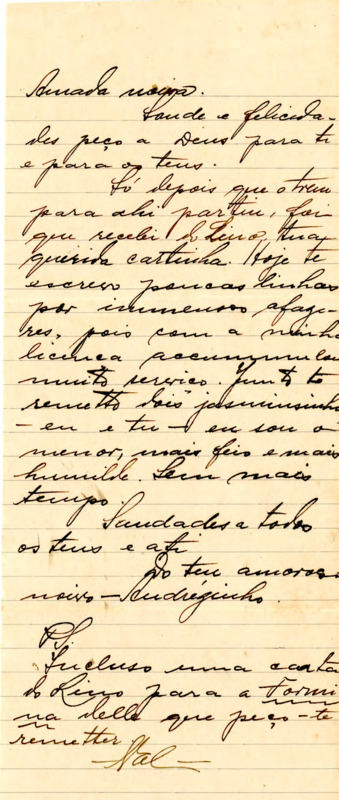 Amada noiva.
Saude e felicida-
des peço a Deus para ti
e para os teus.
Só depois que o trem
para ahi partiu, foi
que recebi do Lino, tua
querida cartinha. Hoje te
escrevo poucas linhas
por immensos afaze-
res, pois com a minha
licença accummulou
muito serviço. Junto te
remetto dois jasminsinhos
- eu e tu - eu sou o
menor, mais feio e mais
humilde. Sem mais
tempo.
Saudades a todos
os teus e a ti
do teu amoroso
noivo - Andréginho.
P.S.
Incluso uma carta
do Lino para a
na delle que peço-te
remetter.